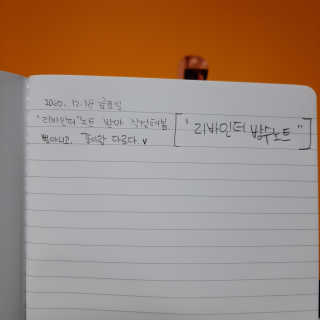 2020. 12. 18 금요일
"리바인더"노트 받아 작성해봄.
뿐아니고, 종이랑 다르다 ♥
["리바인더 방수노트"]